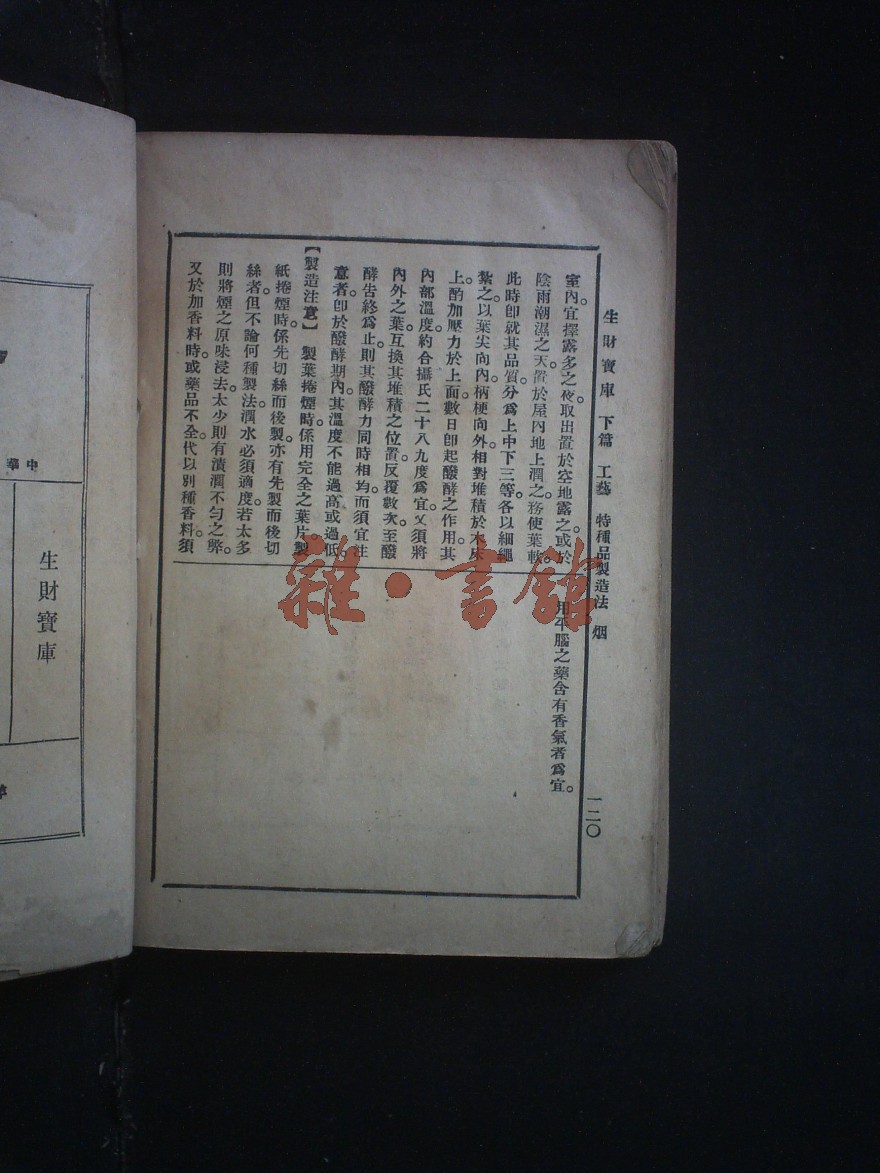 生財寶庫 下篇 工藝 特種品製造法 烟
一二〇
室內。宜擇露多之夜。取出置於空地露之。或於
陰雨潮濕之天。置於屋內地上潤之。務使葉軟。
此時卽就其品質。分爲上中下三等。各以細繩
紮之。以葉尖向內。柄梗向外。相對堆積於木床
上。酌加壓力於上面。數日卽起醱酵之作用。其
內部溫度。約合攝氏二十八九度爲宜。又須將
內外之葉。互換其堆積之位置。反覆數次。至醱
酵告終爲止。則其醱酵力同時相均。而須宜注
意者。卽於醱酵期內。其溫度不能過高或過低。
【製造注意】 製葉捲煙時。係用完全之葉片。製
紙捲煙時。係先切絲而後製。亦有先製而後切
絲者。但不論何種製法。潤水必須適度。若太多
則將煙之原味浸去。太少則有漬潤不勻之弊。
又於加香料時。或藥品不全。代以別種香料。須
用平腦之藥含有香氣者爲宜。
雜·書館
中華
生財寶庫